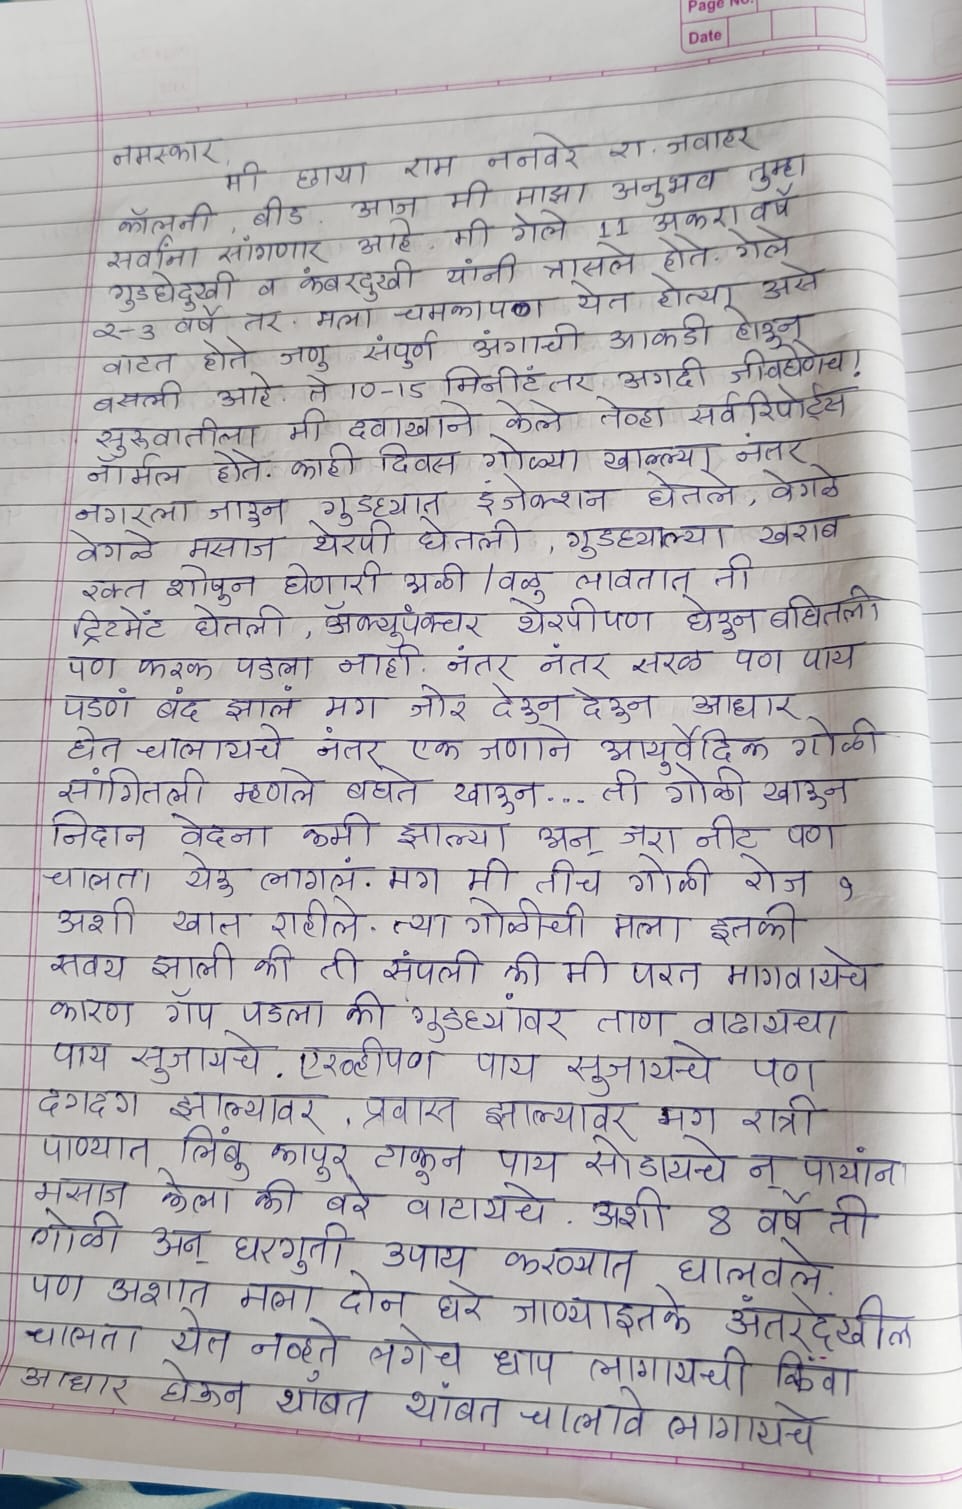 Page No.
Date
नमस्कार,
मी छाया राम ननवरे रा. जवाहर
कॉलनी, बीड. आज मी माझा अनुभव तुम्हा
सर्वांना सांगणार आहे. मी गेले 11 अकरा वर्षे
गुडघेदुखी व कंबरदुखी यांनी त्रासले होते. गेले
२-3 वर्षे तर. मला चमकापण येत होत्या असे
वाटत होते जणु संपुर्ण अंगाची आकडी होऊन
बसली आहे. ते 10-15 मिनीटं तर अगदी जीवघेणेच!
सुरुवातीला मी दवाखाने केले तेव्हा सर्व रिपोर्ट्स
नॉर्मल होते. काही दिवस गोळ्या खाल्ल्या नंतर
नगरला जाऊन गुडघ्यात इंजेक्शन घेतले, वेगळे
वेगळे मसाज थेरपी घेतली, गुडघ्याल्या खराब
रक्त शोषुन घेणारी अळी / वळु लावतात् ती
ट्रिटमेंट घेतली, ॲक्युपंक्चर थेरपीपण घेऊन बघितली
पण फरक पडला नाही. नंतर नंतर सरळ पण पाय
पडणं बंद झालं मग जोर देऊन देऊन आधार
घेत चालायचे नंतर एक जणाने आयुर्वेदिक गोळी
सांगितली म्हणले बघते खाऊन... ती गोळी खाऊन
निदान वेदना कमी झाल्या अन् जरा नीट पण
चालता येऊ लागलं. मग मी तीच गोळी रोज १
अशी खात राहीले. त्या गोळीची मला इतकी
सवय झाली की ती संपली की मी परत मागवायचे
कारण गॅप पडला की गुडघ्यांवर ताण वाढायचा
पाय सुजायचे. एरव्हीपण पाय सुजायचे पण
दगदग झाल्यावर, प्रवास झाल्यावर मग रात्री
पाण्यात लिंबु कापुर टाकुन पाय सोडायचे न् पायांना
मसाज केला की बरे वाटायचे. अशी 8 वर्षे ती
गोळी अन् घरगुती उपाय करण्यात घालवले.
पण अशात मला दोन घरे जाण्याइतके अंतरदेखील
चालता येत नव्हते लगेच धाप लागायची किंवा
आधार घेऊन थांबत थांबत चालावे लागायचे